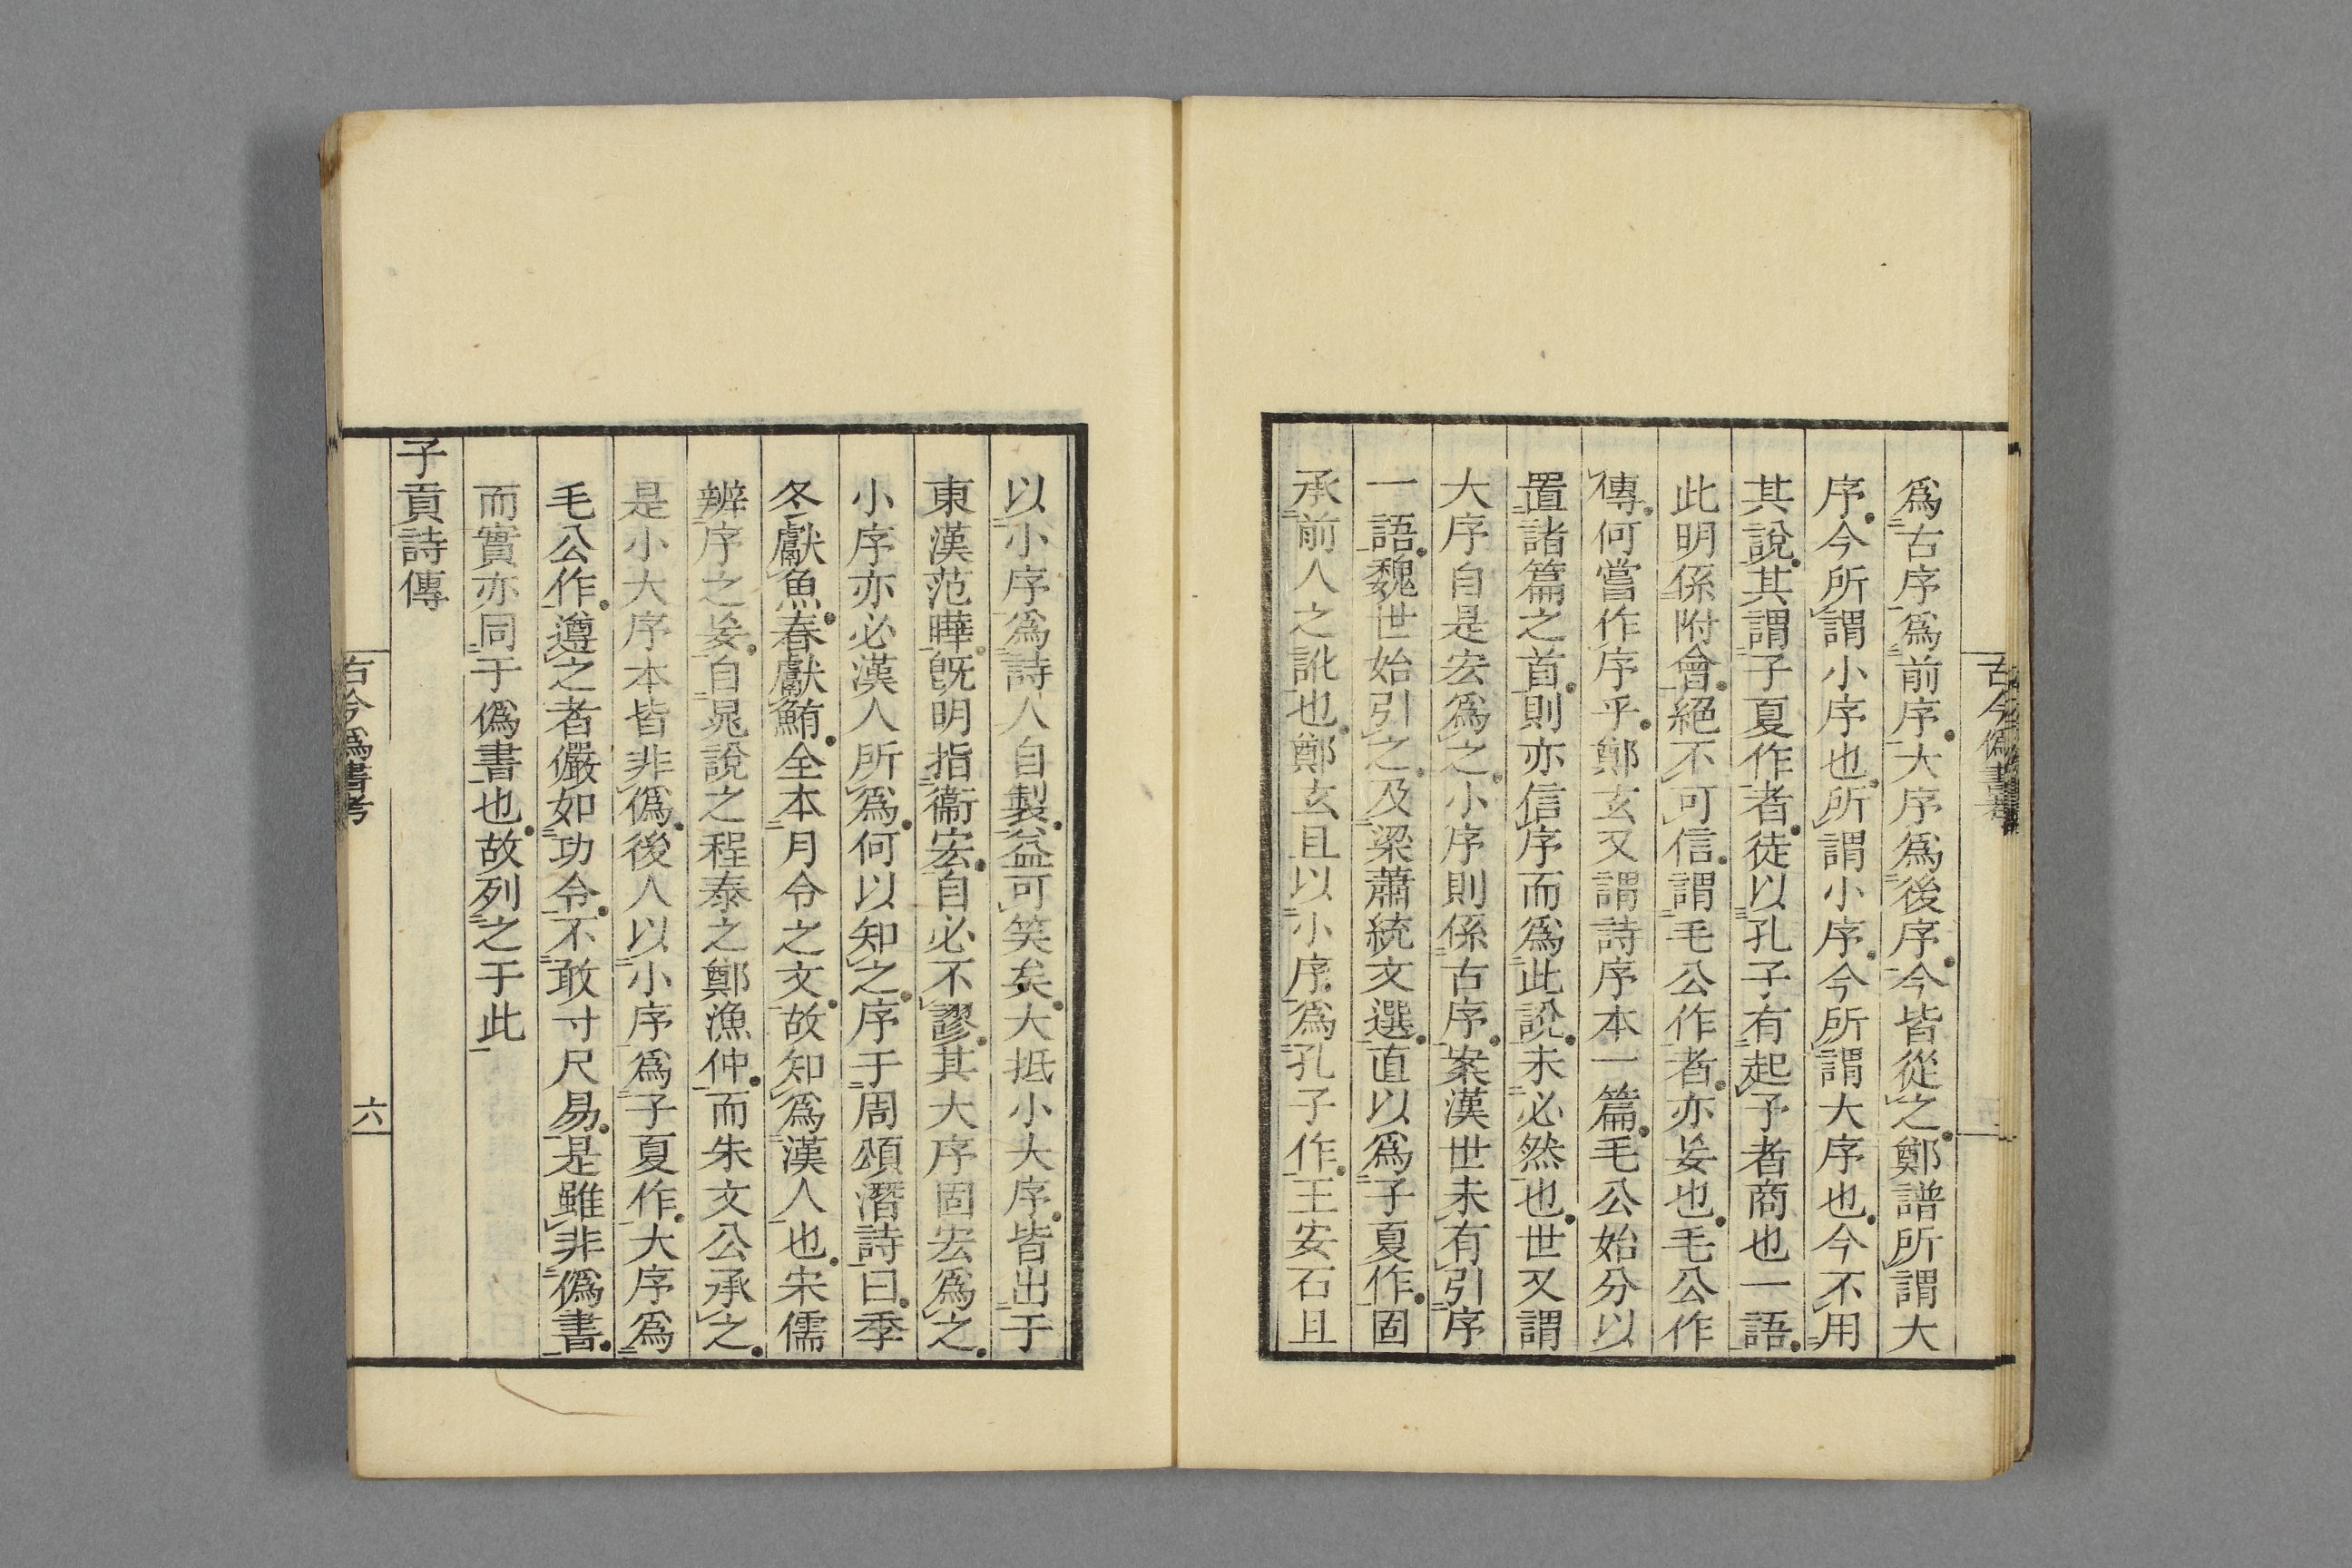 爲古序爲前序大序爲後序今皆從之鄭譜所謂大
序今所謂小序也所謂小序今所謂大序也今不用
其說其謂子夏作者徒以孔子有起予者商也一語
此明係附會絕不可信謂毛公作者亦妄也毛公作
傳何嘗作序乎鄭玄又謂詩序本一篇毛公始分以
置諸篇之首則亦信序而爲此說未必然也世又謂
大序自是宏爲之小序則係古序案漢世未有引序
一語魏世始引之及梁蕭統文選直以爲子夏作固
承前人之訛也鄭玄且以小序爲孔子作王安石且
古今僞書考
以小序爲詩人自製益可笑矣大抵小大序皆出于
東漢范曄旣明指衞宏自必不謬其大序固宏爲之
小序亦必漢人所爲何以知之序于周頌潛詩曰季
冬獻魚春獻鮪全本月令之文故知爲漢人也宋儒
辨序之妄自晁說之程泰之鄭漁仲而朱文公承之
是小大序本皆非僞後人以小序爲子夏作大序爲
毛公作遵之者儼如功令不敢寸尺易是雖非僞書
而實亦同于僞書也故列之于此
子貢詩傳
古今僞書考
六